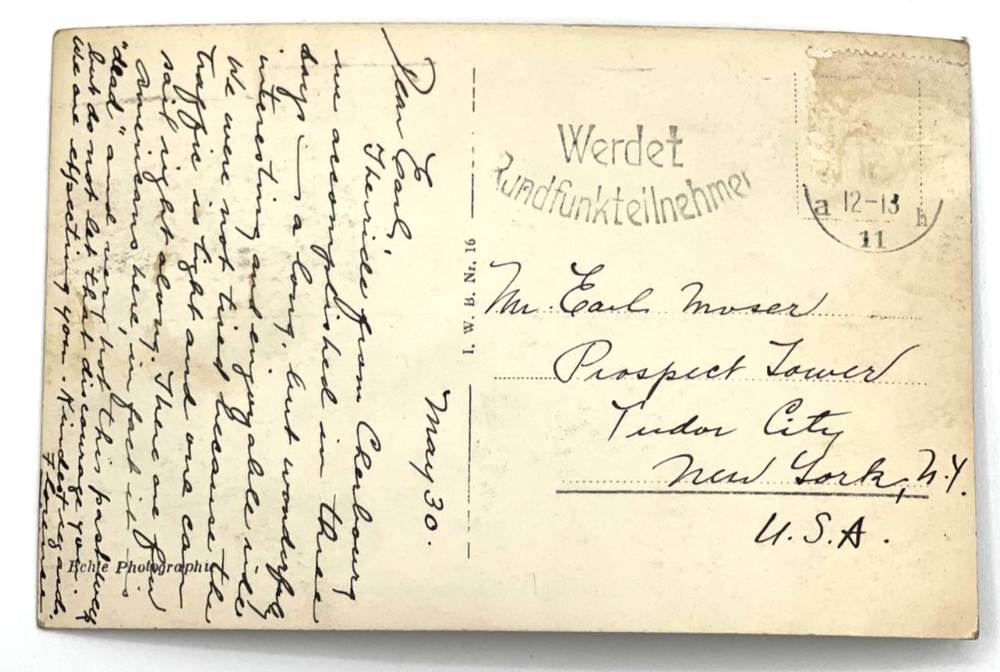 May 30.
Dear Earl,
The ride from Cherbourg
we accomplished in three
days — a long, but wonderful,
interesting and enjoyable ride.
We were not tired because the
traffic is light and one can
sail right along. There are few
Americans here, in fact it is
"dead" and very hot this past week
but do not let that discourage you.
We are expecting you. Kindest regards,
Florence
Echte Photographie
I. W. B. Nr. 16
Werdet
Rundfunkteilnehmer
a 12-13 h
11
Mr. Earl Moser
Prospect Tower
Tudor City
New York, N.Y.
U.S.A.